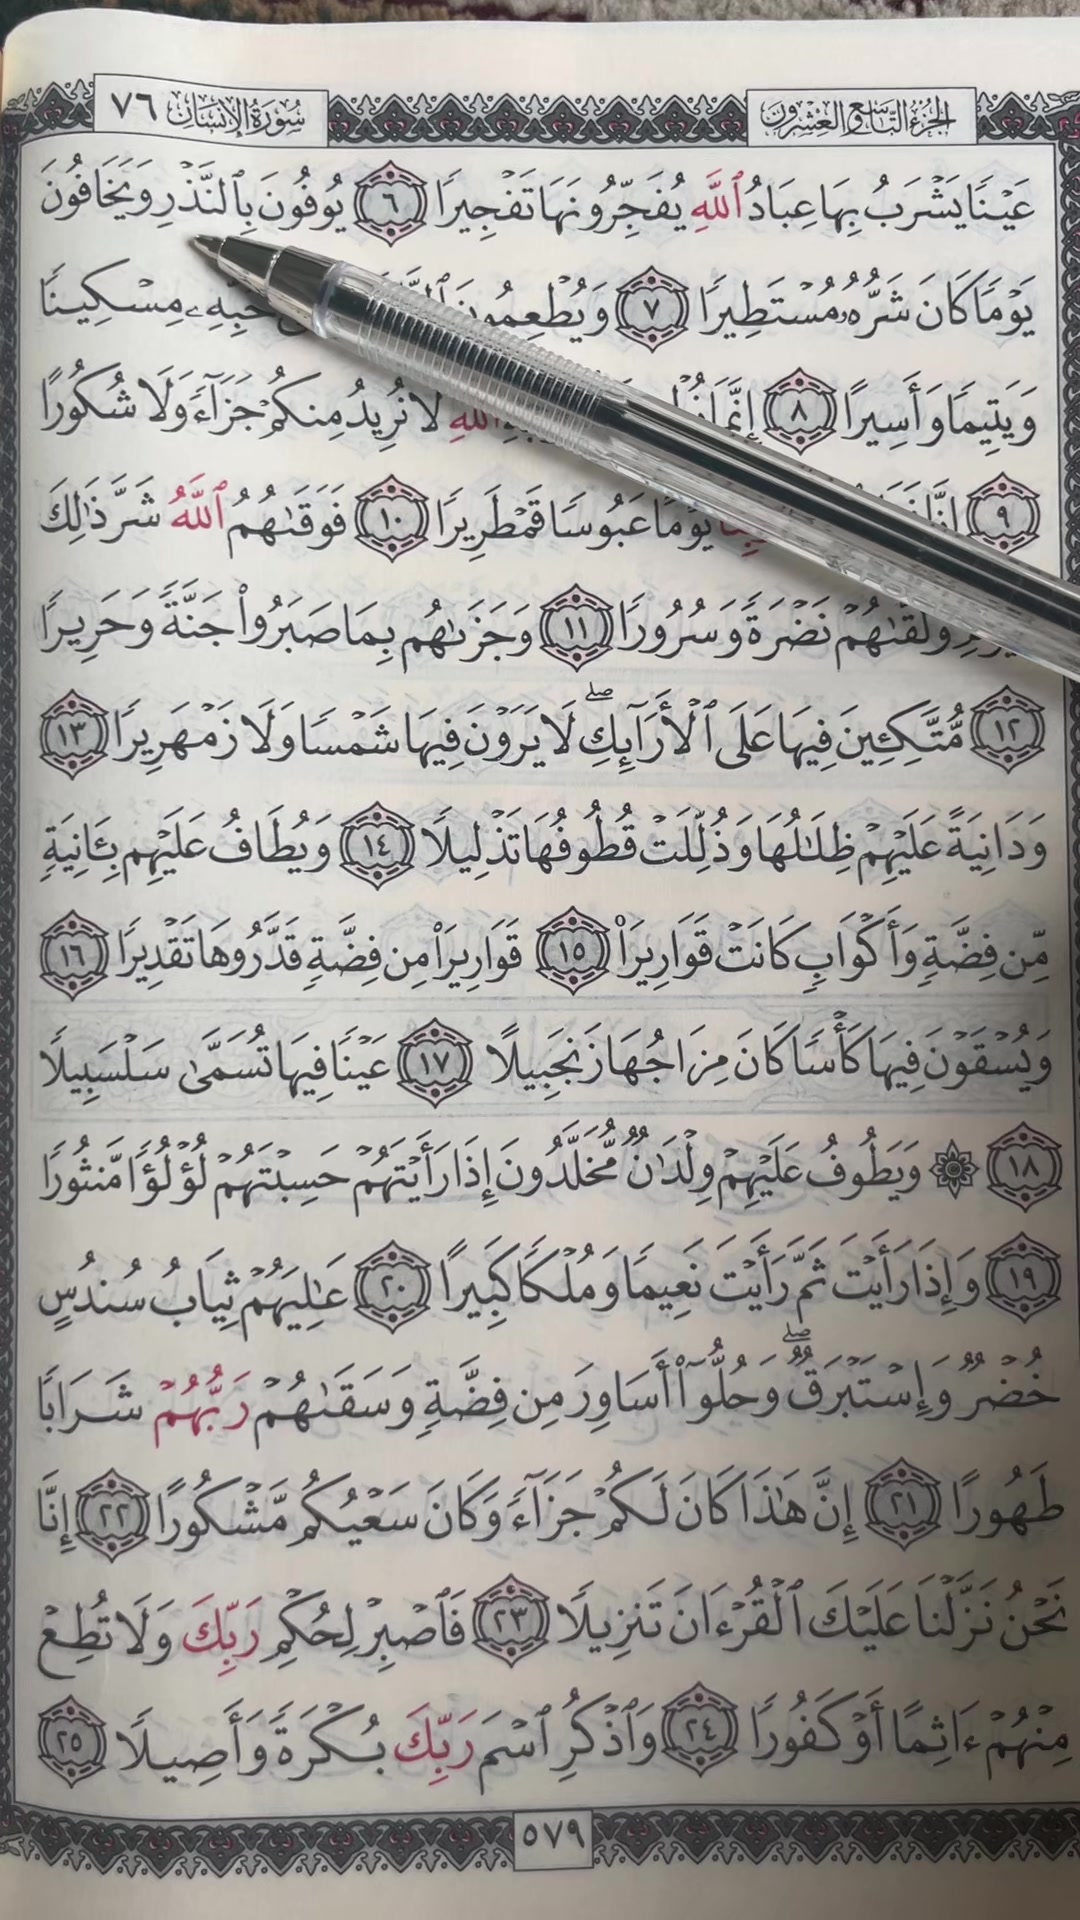 الجزء التاسع والعشرون
سُورَةُ الإِنسَانِ ٧٦
عَيْنًا يَشْرَبُ بِهَا عِبَادُ ٱللَّهِ يُفَجِّرُونَهَا تَفْجِيرًا ٦ يُوفُونَ بِٱلنَّذْرِ وَيَخَافُونَ
يَوْمًا كَانَ شَرُّهُۥ مُسْتَطِيرًا ٧ وَيُطْعِمُونَ حُبِّهِۦ مِسْكِينًا
وَيَتِيمًا وَأَسِيرًا ٨ إِنَّمَا ٱللَّهِ لَا نُرِيدُ مِنكُمْ جَزَآءً وَلَا شُكُورًا
٩ إِنَّا يَوْمًا عَبُوسًا قَمْطَرِيرًا ١٠ فَوَقَىٰهُمُ ٱللَّهُ شَرَّ ذَٰلِكَ
وَلَقَّىٰهُمْ نَضْرَةً وَسُرُورًا ١١ وَجَزَىٰهُم بِمَا صَبَرُوا۟ جَنَّةً وَحَرِيرًا
١٢ مُّتَّكِـِٔينَ فِيهَا عَلَى ٱلْأَرَآئِكِ ۖ لَا يَرَوْنَ فِيهَا شَمْسًا وَلَا زَمْهَرِيرًا ١٣
وَدَانِيَةً عَلَيْهِمْ ظِلَـٰلُهَا وَذُلِّلَتْ قُطُوفُهَا تَذْلِيلًا ١٤ وَيُطَافُ عَلَيْهِم بِـَٔانِيَةٍ
مِّن فِضَّةٍ وَأَكْوَابٍ كَانَتْ قَوَارِيرَا۠ ١٥ قَوَارِيرَا۟ مِن فِضَّةٍ قَدَّرُوهَا تَقْدِيرًا ١٦
وَيُسْقَوْنَ فِيهَا كَأْسًا كَانَ مِزَاجُهَا زَنجَبِيلًا ١٧ عَيْنًا فِيهَا تُسَمَّىٰ سَلْسَبِيلًا
١٨ ۞ وَيَطُوفُ عَلَيْهِمْ وِلْدَٰنٌ مُّخَلَّدُونَ إِذَا رَأَيْتَهُمْ حَسِبْتَهُمْ لُؤْلُؤًا مَّنثُورًا
١٩ وَإِذَا رَأَيْتَ ثَمَّ رَأَيْتَ نَعِيمًا وَمُلْكًا كَبِيرًا ٢٠ عَـٰلِيَهُمْ ثِيَابُ سُندُسٍ
خُضْرٌ وَإِسْتَبْرَقٌ ۖ وَحُلُّوٓا۟ أَسَاوِرَ مِن فِضَّةٍ وَسَقَىٰهُمْ رَبُّهُمْ شَرَابًا
طَهُورًا ٢١ إِنَّ هَـٰذَا كَانَ لَكُمْ جَزَآءً وَكَانَ سَعْيُكُم مَّشْكُورًا ٢٢ إِنَّا
نَحْنُ نَزَّلْنَا عَلَيْكَ ٱلْقُرْءَانَ تَنزِيلًا ٢٣ فَٱصْبِرْ لِحُكْمِ رَبِّكَ وَلَا تُطِعْ
مِنْهُمْ ءَاثِمًا أَوْ كَفُورًا ٢٤ وَٱذْكُرِ ٱسْمَ رَبِّكَ بُكْرَةً وَأَصِيلًا ٢٥
٥٧٩